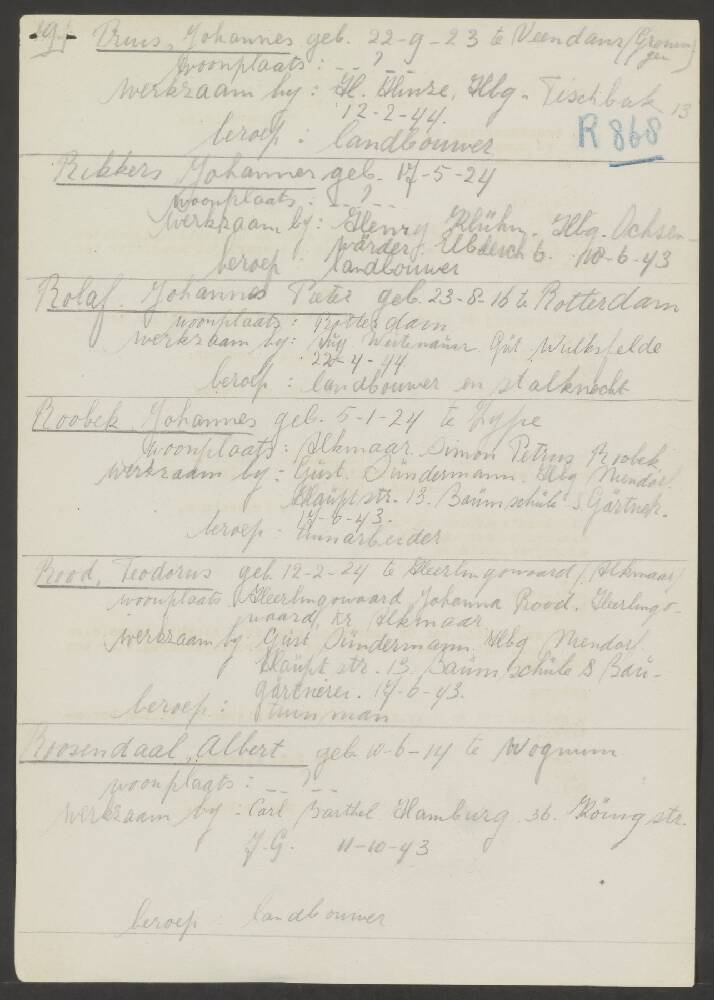 19.
Prins, Johannes geb. 22-9-23 te Veendam (Gronin
gen)
woonplaats: - - ?
werkzaam by: H. Hinze, Hbg - Tischbek 13
12-2-44.
beroep: landbouwer
R 868
Rikkers Johannes geb. 17-5-24
woonplaats: - - ? - -
werkzaam by: Henry Klühn. Hbg. Ochsen-
wärder, Elbdeich 6. 10-6-43
beroep landbouwer
Rolaf. Johannes Pieter geb. 23-8-16 te Rotterdam
woonplaats: Rotterdam
werkzaam by: Gut Wulksfelde
22-4-44
beroep: landbouwer en stalknecht
Roobek Johannes geb. 5-1-24 te Zype
woonplaats: Alkmaar. Simon Petrus Roobek
werkzaam by: Gust. Sündermann. Hbg Niendorf
Hauptstr. 13. Baumschule & Gärtner.
17-6-43.
beroep - tuinarbeider
Rood, Teodorus geb. 12-2-24 te Heerhugowaard (Alkmaar)
woonplaats Heerhugowaard Johanna Rood. Heerhugo-
waard, kr Alkmaar
werkzaam by Gust Sündermann. Hbg Niendorf.
Haupt str. 13. Baum schule & Bau-
gärtnerei. 17-6-43.
beroep: tuinman
Roosendaal, Albert geb 10-6-14 te Wognum
woonplaats: - - ? - -
werkzaam by: Carl Barthel Hamburg. 36. König str.
J.G. 11-10-43
beroep: landbouwer